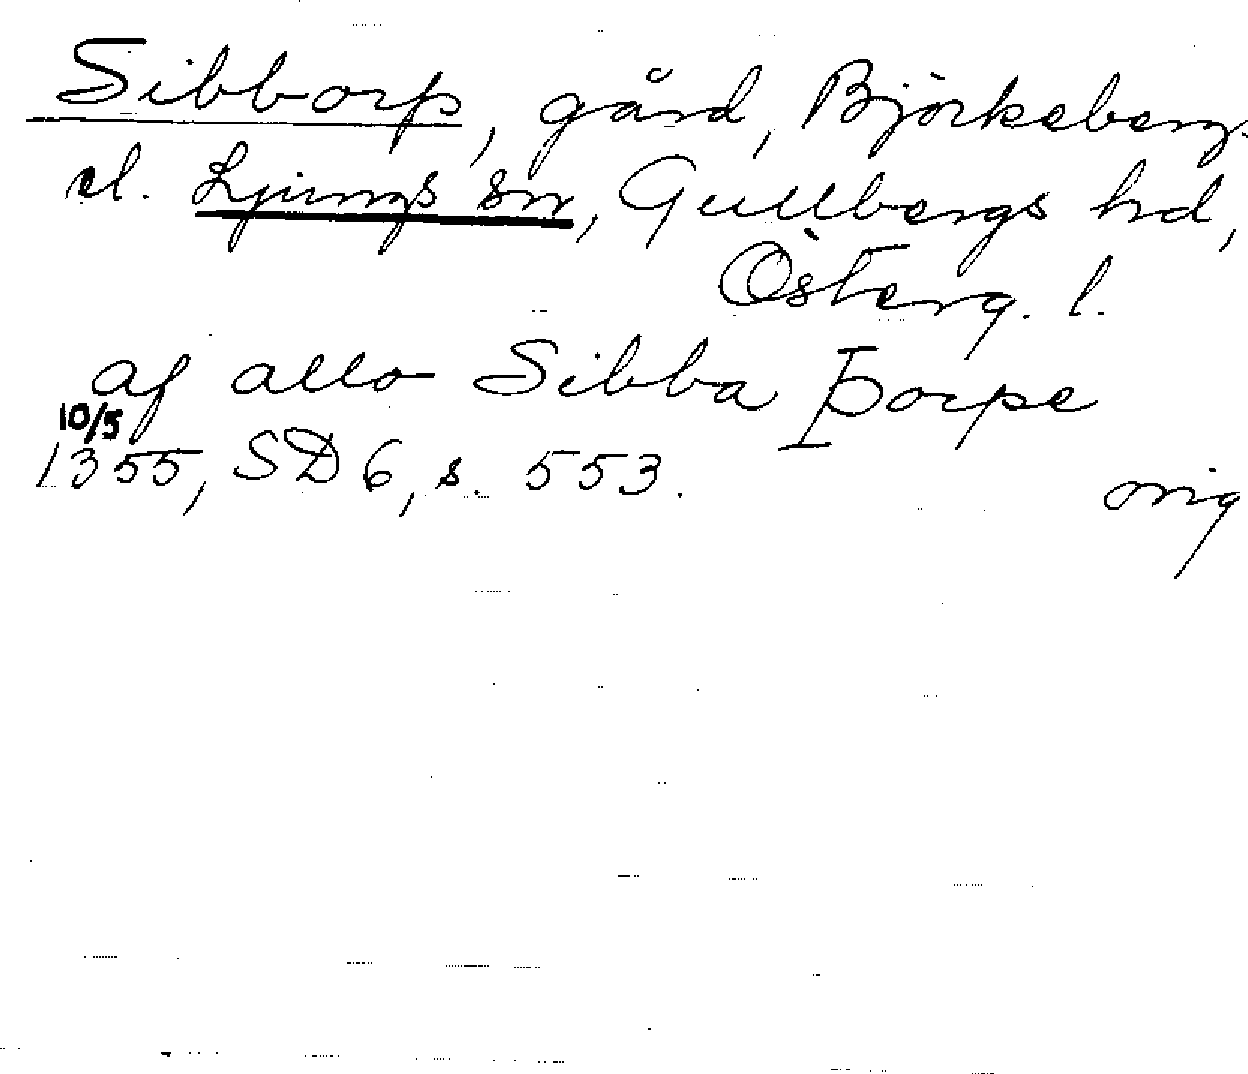 Sibborp, gård, Björkeberg
el. Ljungs sn, Gullbergs hd,
Österg. l.
af allo Sibba Þorpe
10/5
1355, SD 6, s. 553.
orig